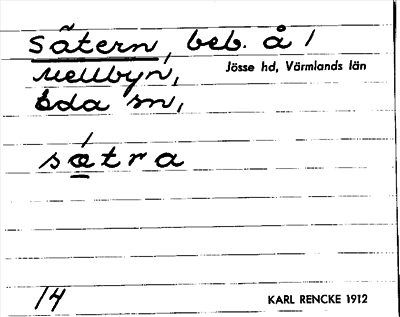 Sätern, beb. å /
Mellbyn, Jösse hd, Värmlands län
Eda sn,
sætra
14 KARL RENCKE 1912